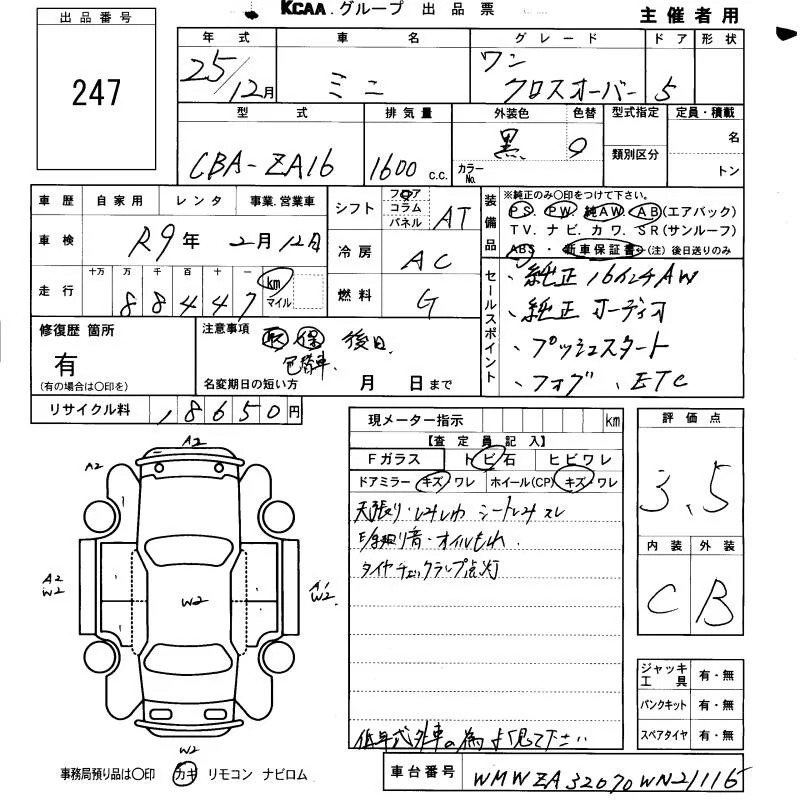 KCAA.グループ 出品票
主催者用
出品番号
247
年式 車名 グレード ドア 形状
25/12月 ミニ ワン クロスオーバー 5
型式 排気量 外装色 色替 型式指定 定員・積載
CBA-ZA16 1600 c.c. 黒 カラーNo. 類別区分 名
トン
車歴 自家用 レンタ 事業.営業車
車検 R9年 2月12日
走行 十万 万 千 百 十 一
88447 km マイル
シフト フロア コラム パネル AT
冷房 AC
燃料 G
装備品
※純正のみ〇印をつけて下さい。
PS. PW. 純AW. AB(エアバック)
TV. ナビ. カワ. SR(サンルーフ)
ABS ・ 新車保証書 (注) 後日送りのみ
セールスポイント
、純正16インチAW
、純正オーディオ
、プッシュスタート
、フォグ 、ETC
修復歴 箇所
有
(有の場合は〇印を)
注意事項 取 保 後日
色替車.
名変期日の短い方 月 日まで
リサイクル料 18650円
現メーター指示 km
【査定員記入】
Fガラス トビ石 ヒビワレ
ドアミラー キズ・ワレ ホイール(CP) キズ・ワレ
天張り・シミシワ シートシミスレ
オイルもれ.
タイヤチェックランプ点灯
低年式外車の為よく見て下さい
評価点
3.5
内装 外装
C B
ジャッキ工具 有・無
パンクキット 有・無
スペアタイヤ 有・無
A2
A2
A2
W2
W2
A1
W2.
W2
事務局預り品は〇印 カギ リモコン ナビロム
車台番号 WMWZA32070WN21116